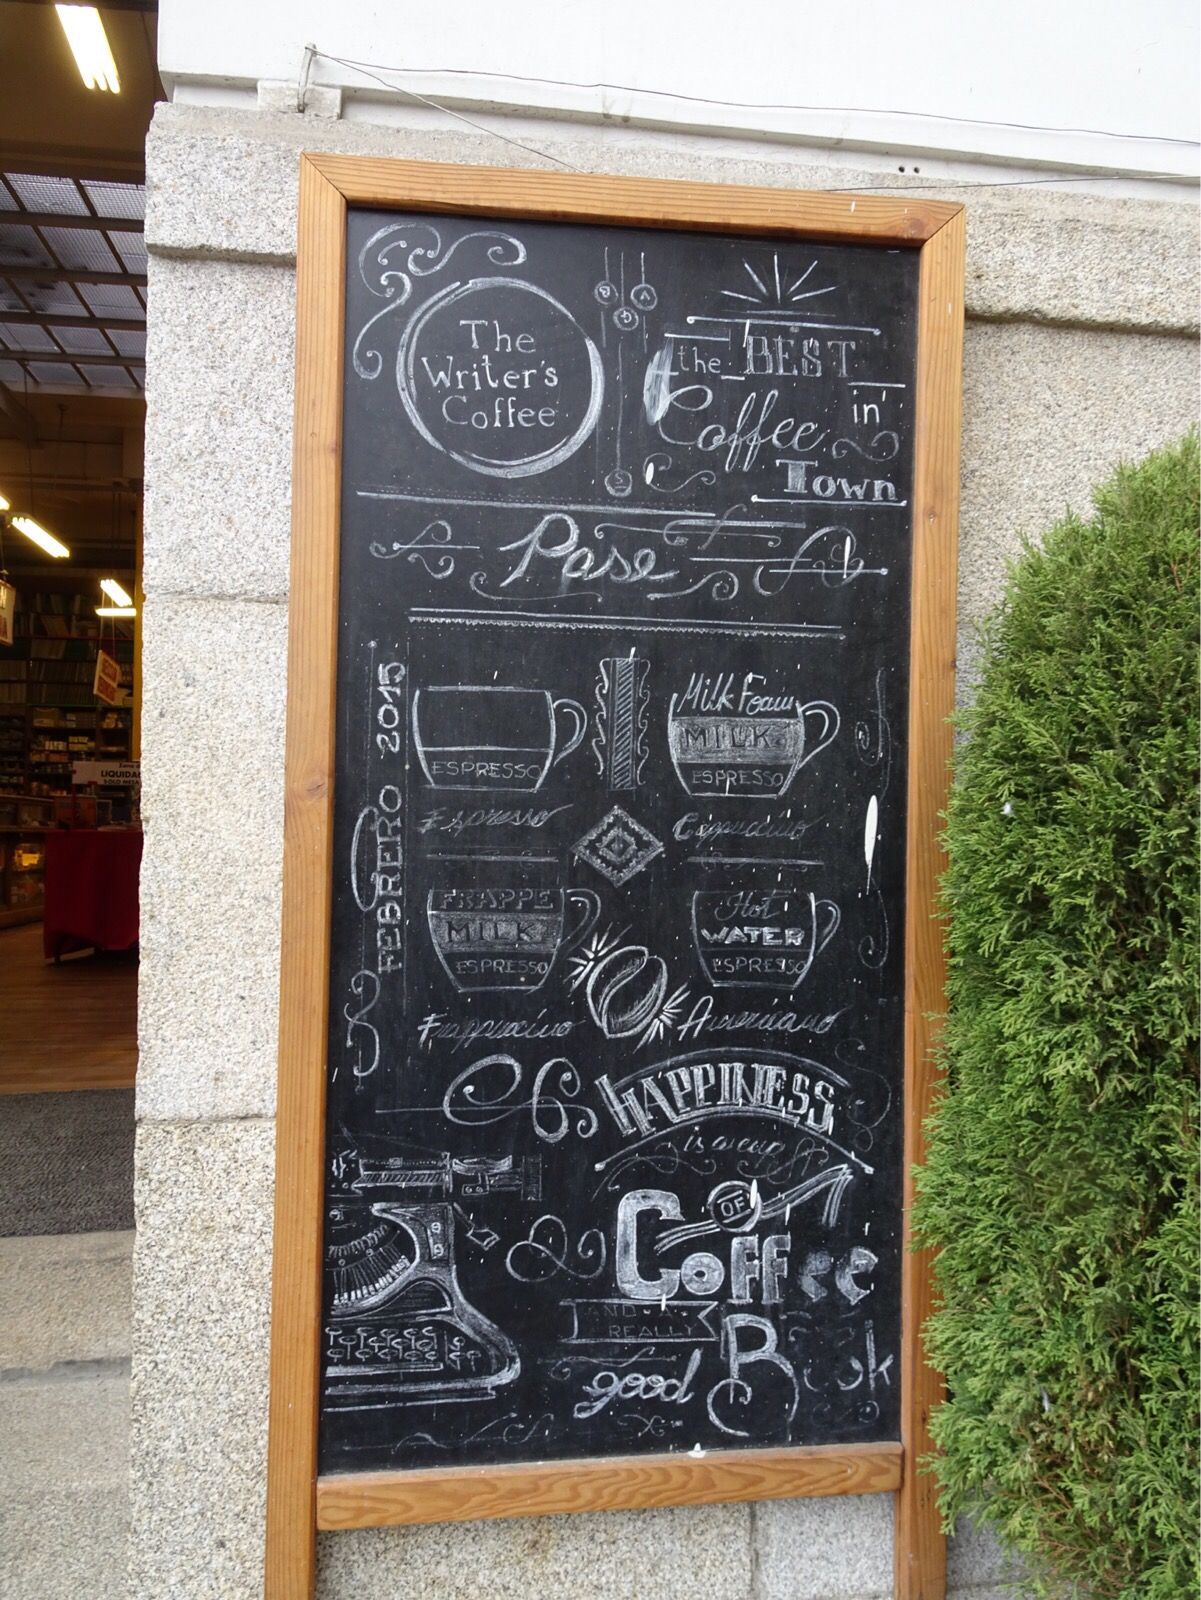 The
Writer's
Coffee
the BEST
Coffee in
Town
Pase
FEBRERO 2015
ESPRESSO
Espresso
Milk Foam
MILK
ESPRESSO
Cappuccino
FRAPPE
MILK
ESPRESSO
Frappuccino
Hot
WATER
ESPRESSO
Americano
HAPPINESS
is a cup
OF
Coffee
AND
REALLY
good Book
LIQUIDA